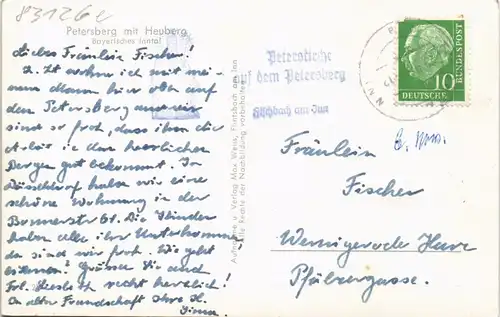 83126 c
Petersberg mit Heuberg
Bayerisches Inntal
Liebes Fräulein Fischer!
z. Zt. wohne ich mit mei-
nem Mann hier oben auf
dem Petersberg und wir
sind so froh, dass ihm die
in den herrlichen
Bergen gut bekommt. In
Düsseldorf haben wir eine
schöne Wohnung in der
Bonnerstr 61. Die Kinder
haben alle ihr Unterkommen
da sind wir froh. Wie geht
es Ihnen? Grüsse Sie und
Frl. recht herzlich!
In alter Freundschaft Ihre H.
Aufnahme u. Verlag Max Weiss, Flintsbach am Inn
Alle Rechte der Nachbildung vorbehalten
Peterskirche
auf dem Petersberg
Fischbach am Inn
DEUTSCHE
BUNDESPOST
10
Fräulein
Fischer
Wernigerode Harz
Pfälzergasse.